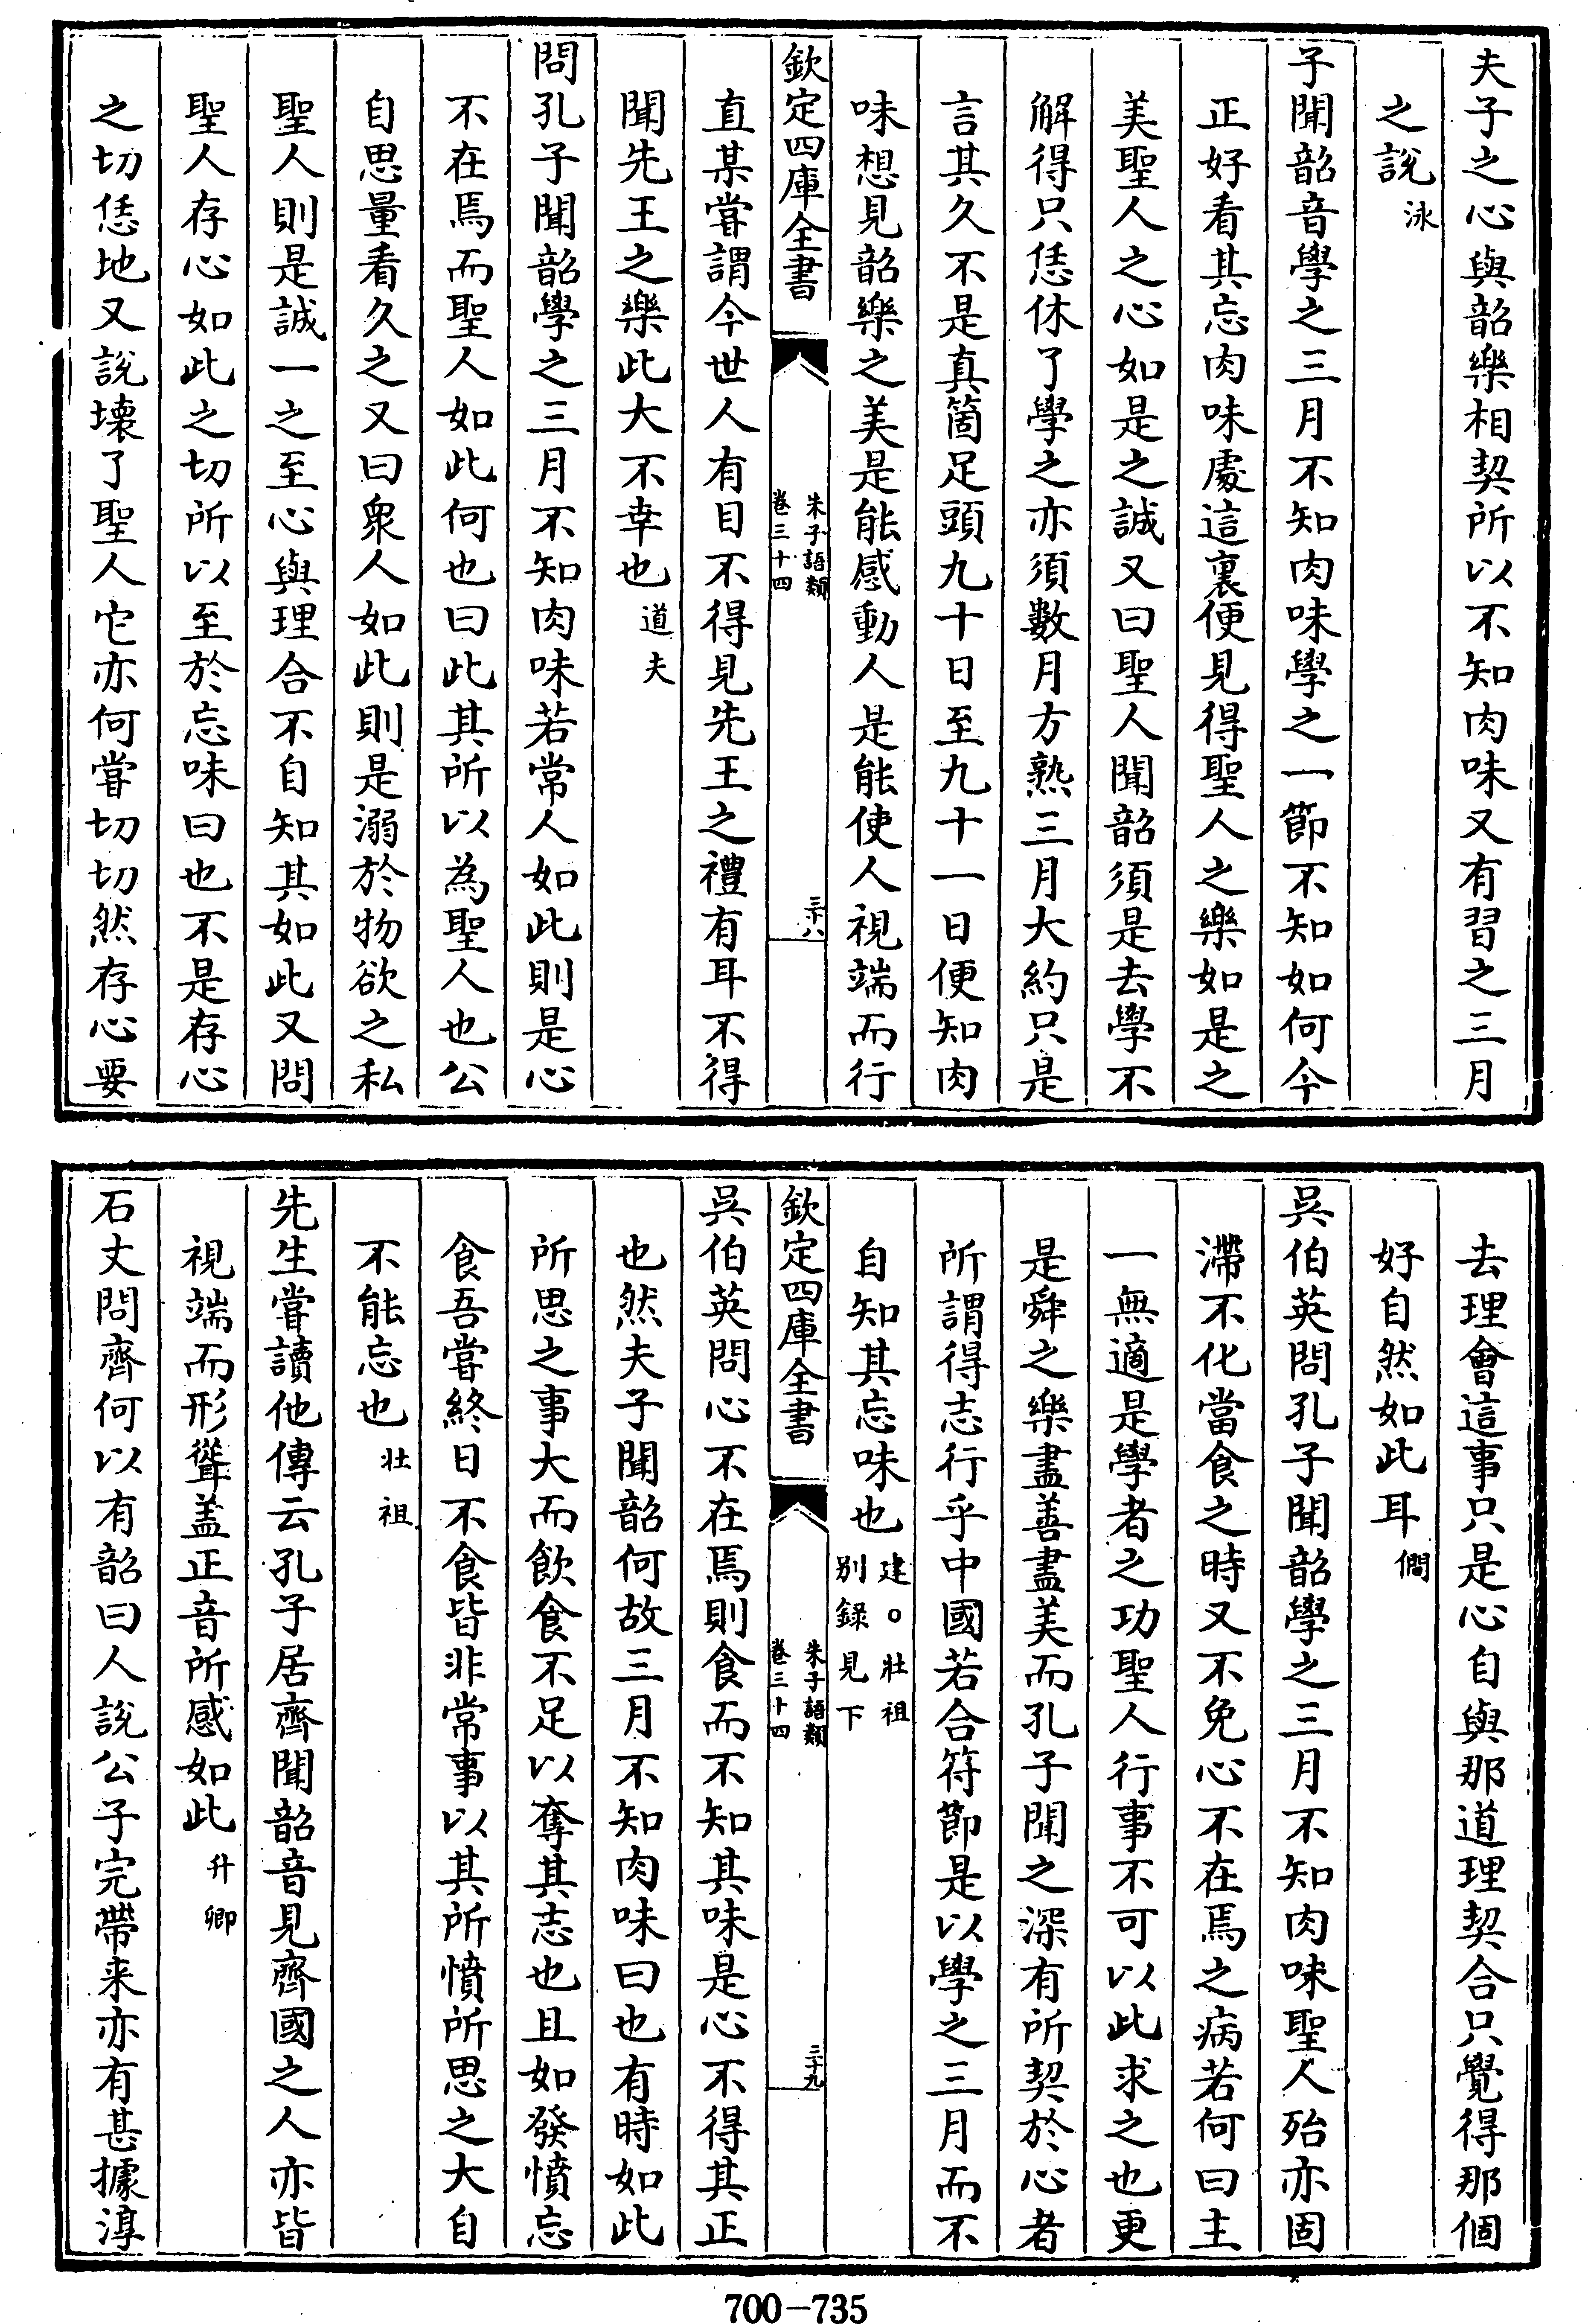 夫子之心與韶樂相契所以不知肉味又有習之三月
之說泳
子聞韶音學之三月不知肉味學之一節不知如何今
正好看其忘肉味處這裏便見得聖人之樂如是之
美聖人之心如是之誠又曰聖人聞韶須是去學不
解得只恁休了學之亦須數月方熟三月大約只是
言其久不是真箇足頭九十日至九十一日便知肉
味想見韶樂之美是能感動人是能使人視端而行
欽定四庫全書
朱子語類
卷三十四
三十八
直某嘗謂今世人有目不得見先王之禮有耳不得
聞先王之樂此大不幸也道夫
問孔子聞韶學之三月不知肉味若常人如此則是心
不在焉而聖人如此何也曰此其所以為聖人也公
自思量看久之又曰衆人如此則是溺於物欲之私
聖人則是誠一之至心與理合不自知其如此又問
聖人存心如此之切所以至於忘味曰也不是存心
之切恁地又說壊了聖人它亦何嘗切切然存心要
去理會這事只是心自與那道理契合只覺得那個
好自然如此耳僩
吳伯英問孔子聞韶學之三月不知肉味聖人殆亦固
滯不化當食之時又不免心不在焉之病若何曰主
一無適是學者之功聖人行事不可以此求之也更
是舜之樂盡善盡美而孔子聞之深有所契於心者
所謂得志行乎中國若合符節是以學之三月而不
自知其忘味也建○壯祖
別録見下
欽定四庫全書
朱子語類
卷三十四
三十九
吳伯英問心不在焉則食而不知其味是心不得其正
也然夫子聞韶何故三月不知肉味曰也有時如此
所思之事大而飲食不足以奪其志也且如發憤忘
食吾嘗終日不食皆非常事以其所憤所思之大自
不能忘也壯祖
先生嘗讀他傳云孔子居齊聞韶音見齊國之人亦皆
視端而形聳盖正音所感如此升卿
石丈問齊何以有韶曰人說公子完帶来亦有甚據淳
700-735